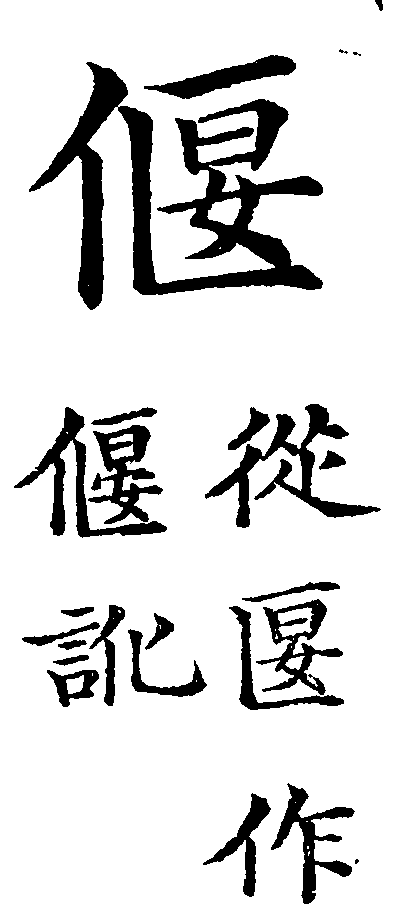 偃
從匽作
偃訛